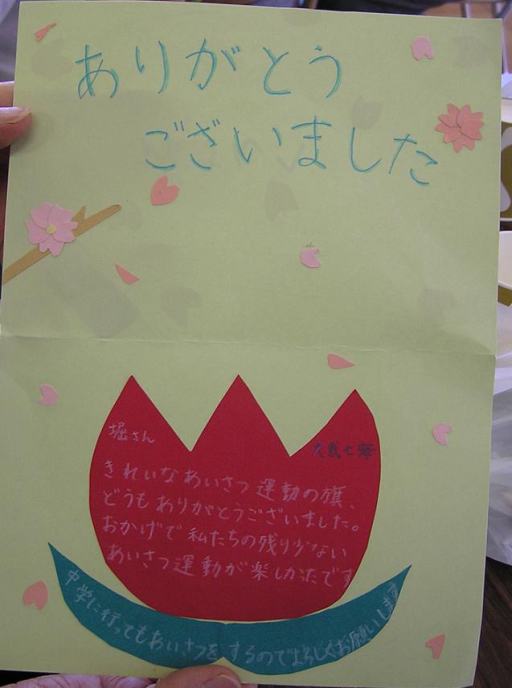 ありがとう
ございました
堀さん
きれいなあいさつ運動の旗、
どうもありがとうございました。
おかげで私たちの残り少ない
あいさつ運動が楽しかたです
中学に行ってもあいさつをするのでよろしくお願いします